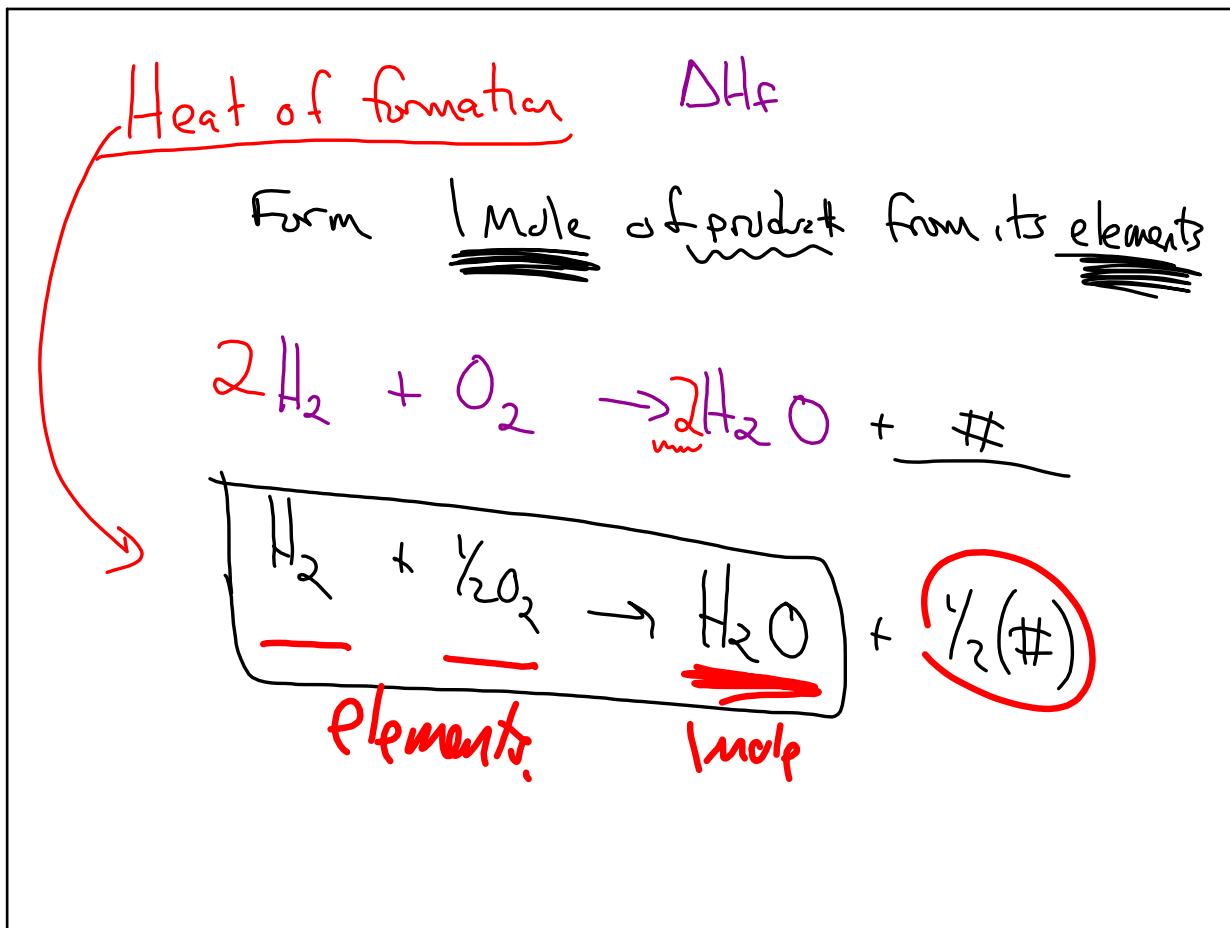 Heat of formation ΔHf
Form 1 mole of product from its elements
2H₂ + O₂ → 2H₂O + #
H₂ + ½O₂ → H₂O + ½(#)
elements. 1 mole